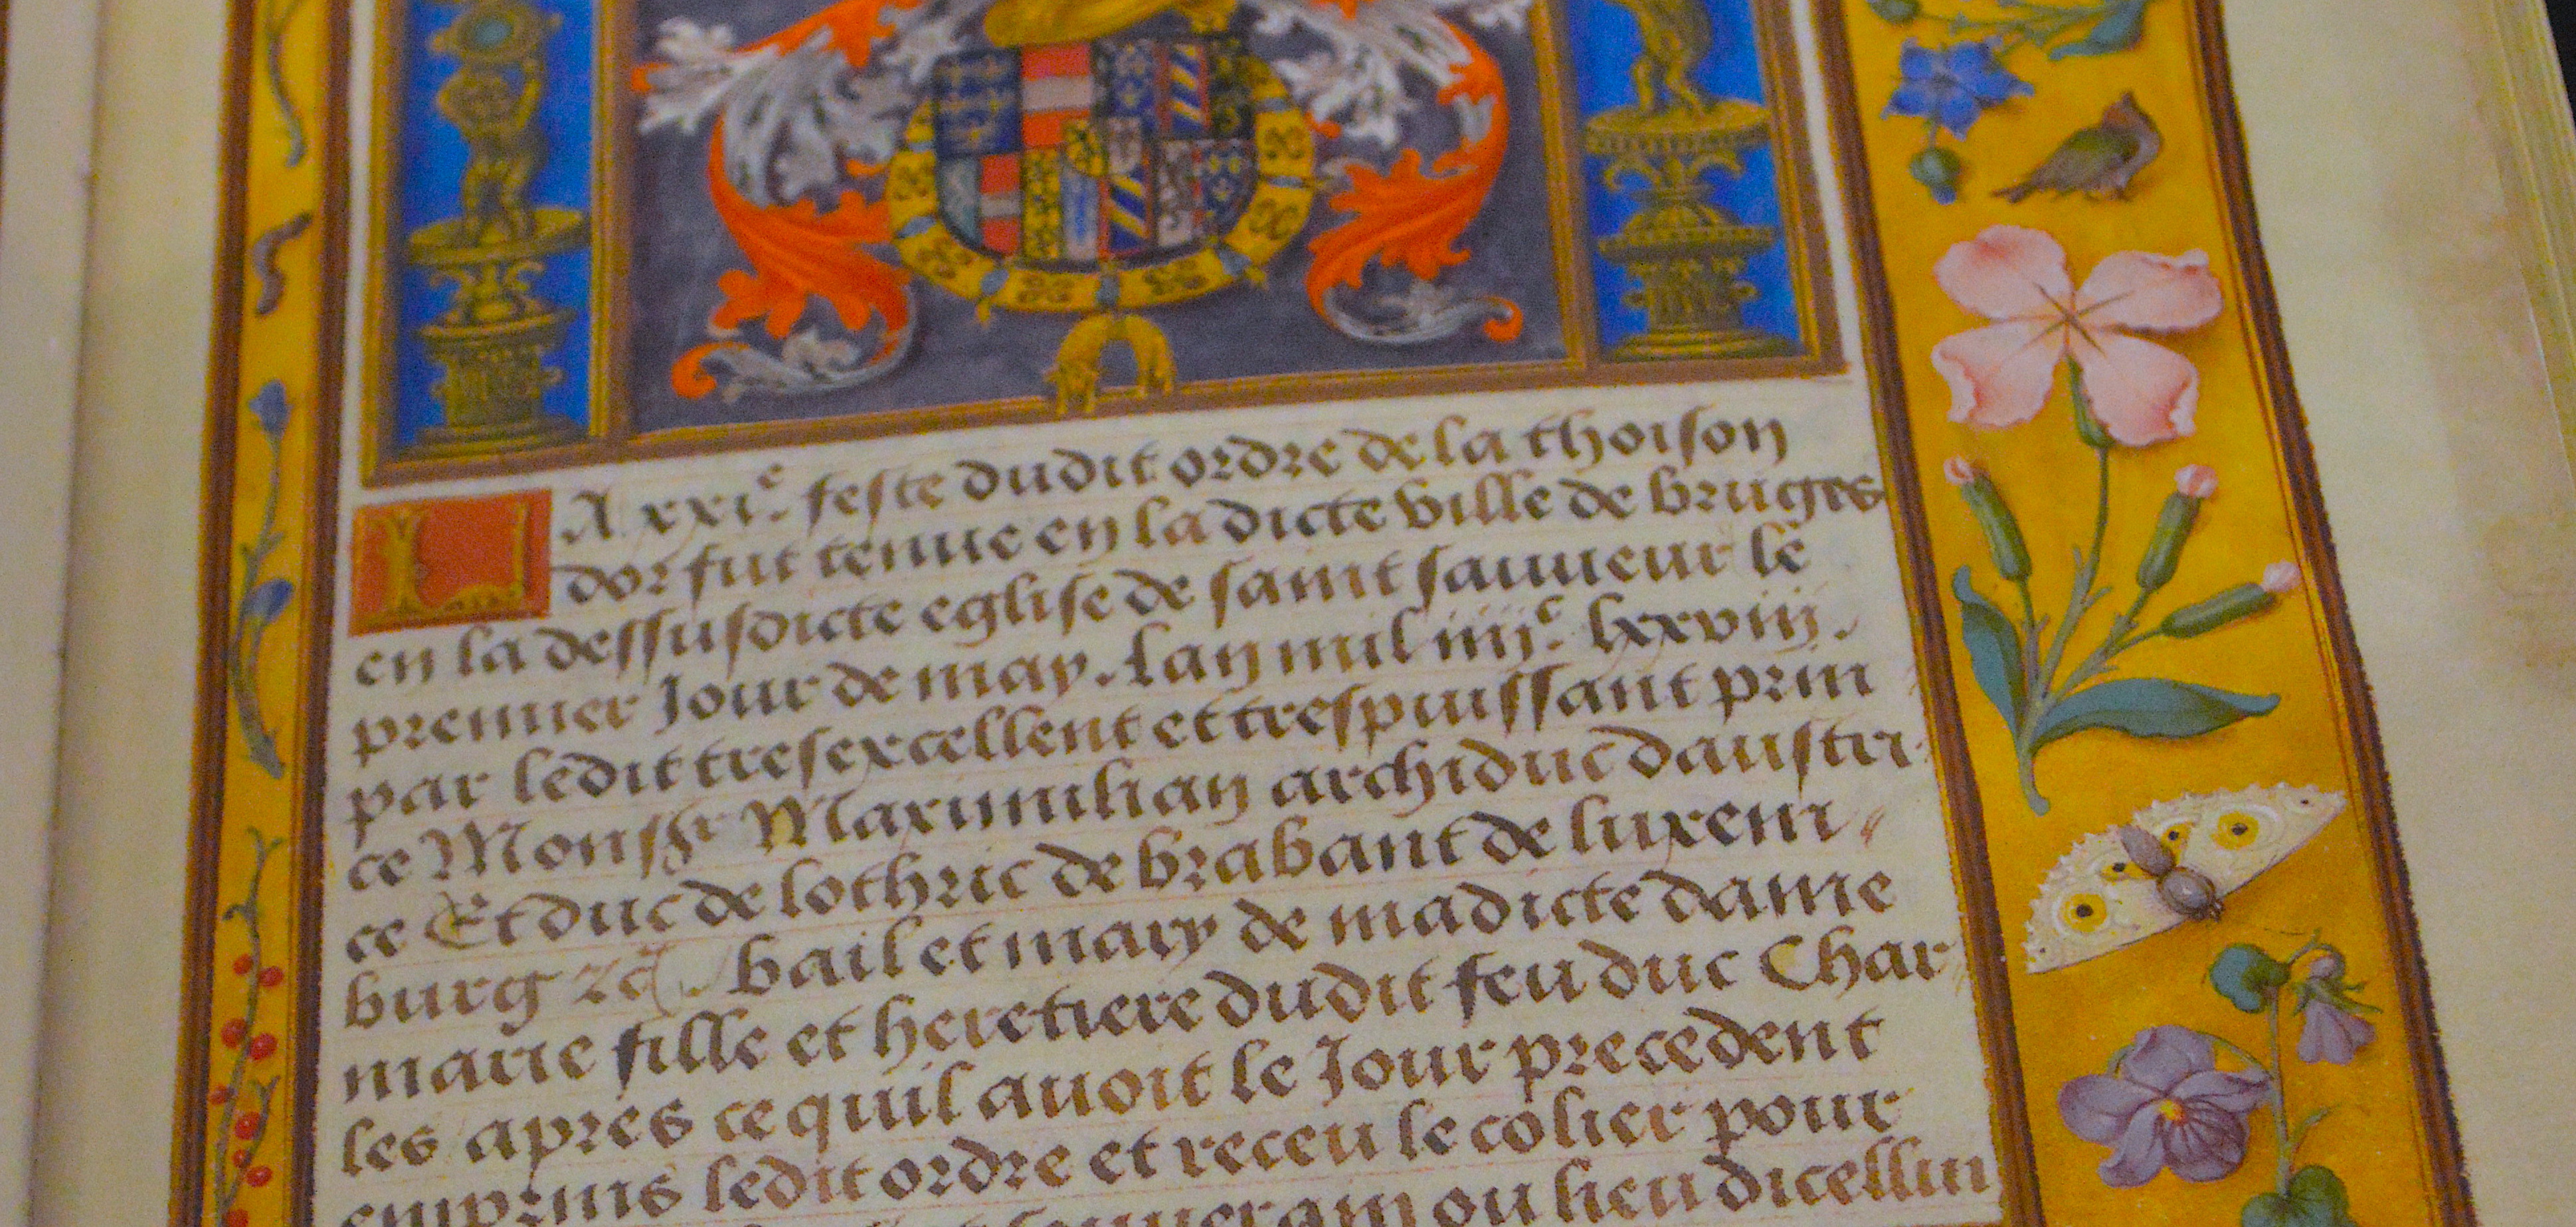 LA xxi.e feste dudit ordre de la thoison
dor fut tenue en la dicte ville de bruges
en la dessusdicte eglise de saint sauueur le
premier Jour de may. Lan mil iiijc. lxxviij.
par ledit tresexcellent et trespuissant prin
ce Monsgr Maximilian archiduc daustri
ce Et duc de lothric de brabant de luxem
burg zc. bail et mary de madicte dame
marie fille et heretiere dudit feu duc Char
les apres ce quil auoit le Jour precedent
emprins ledit ordre et receu le colier pour
souuerain ou lieu dicelluy